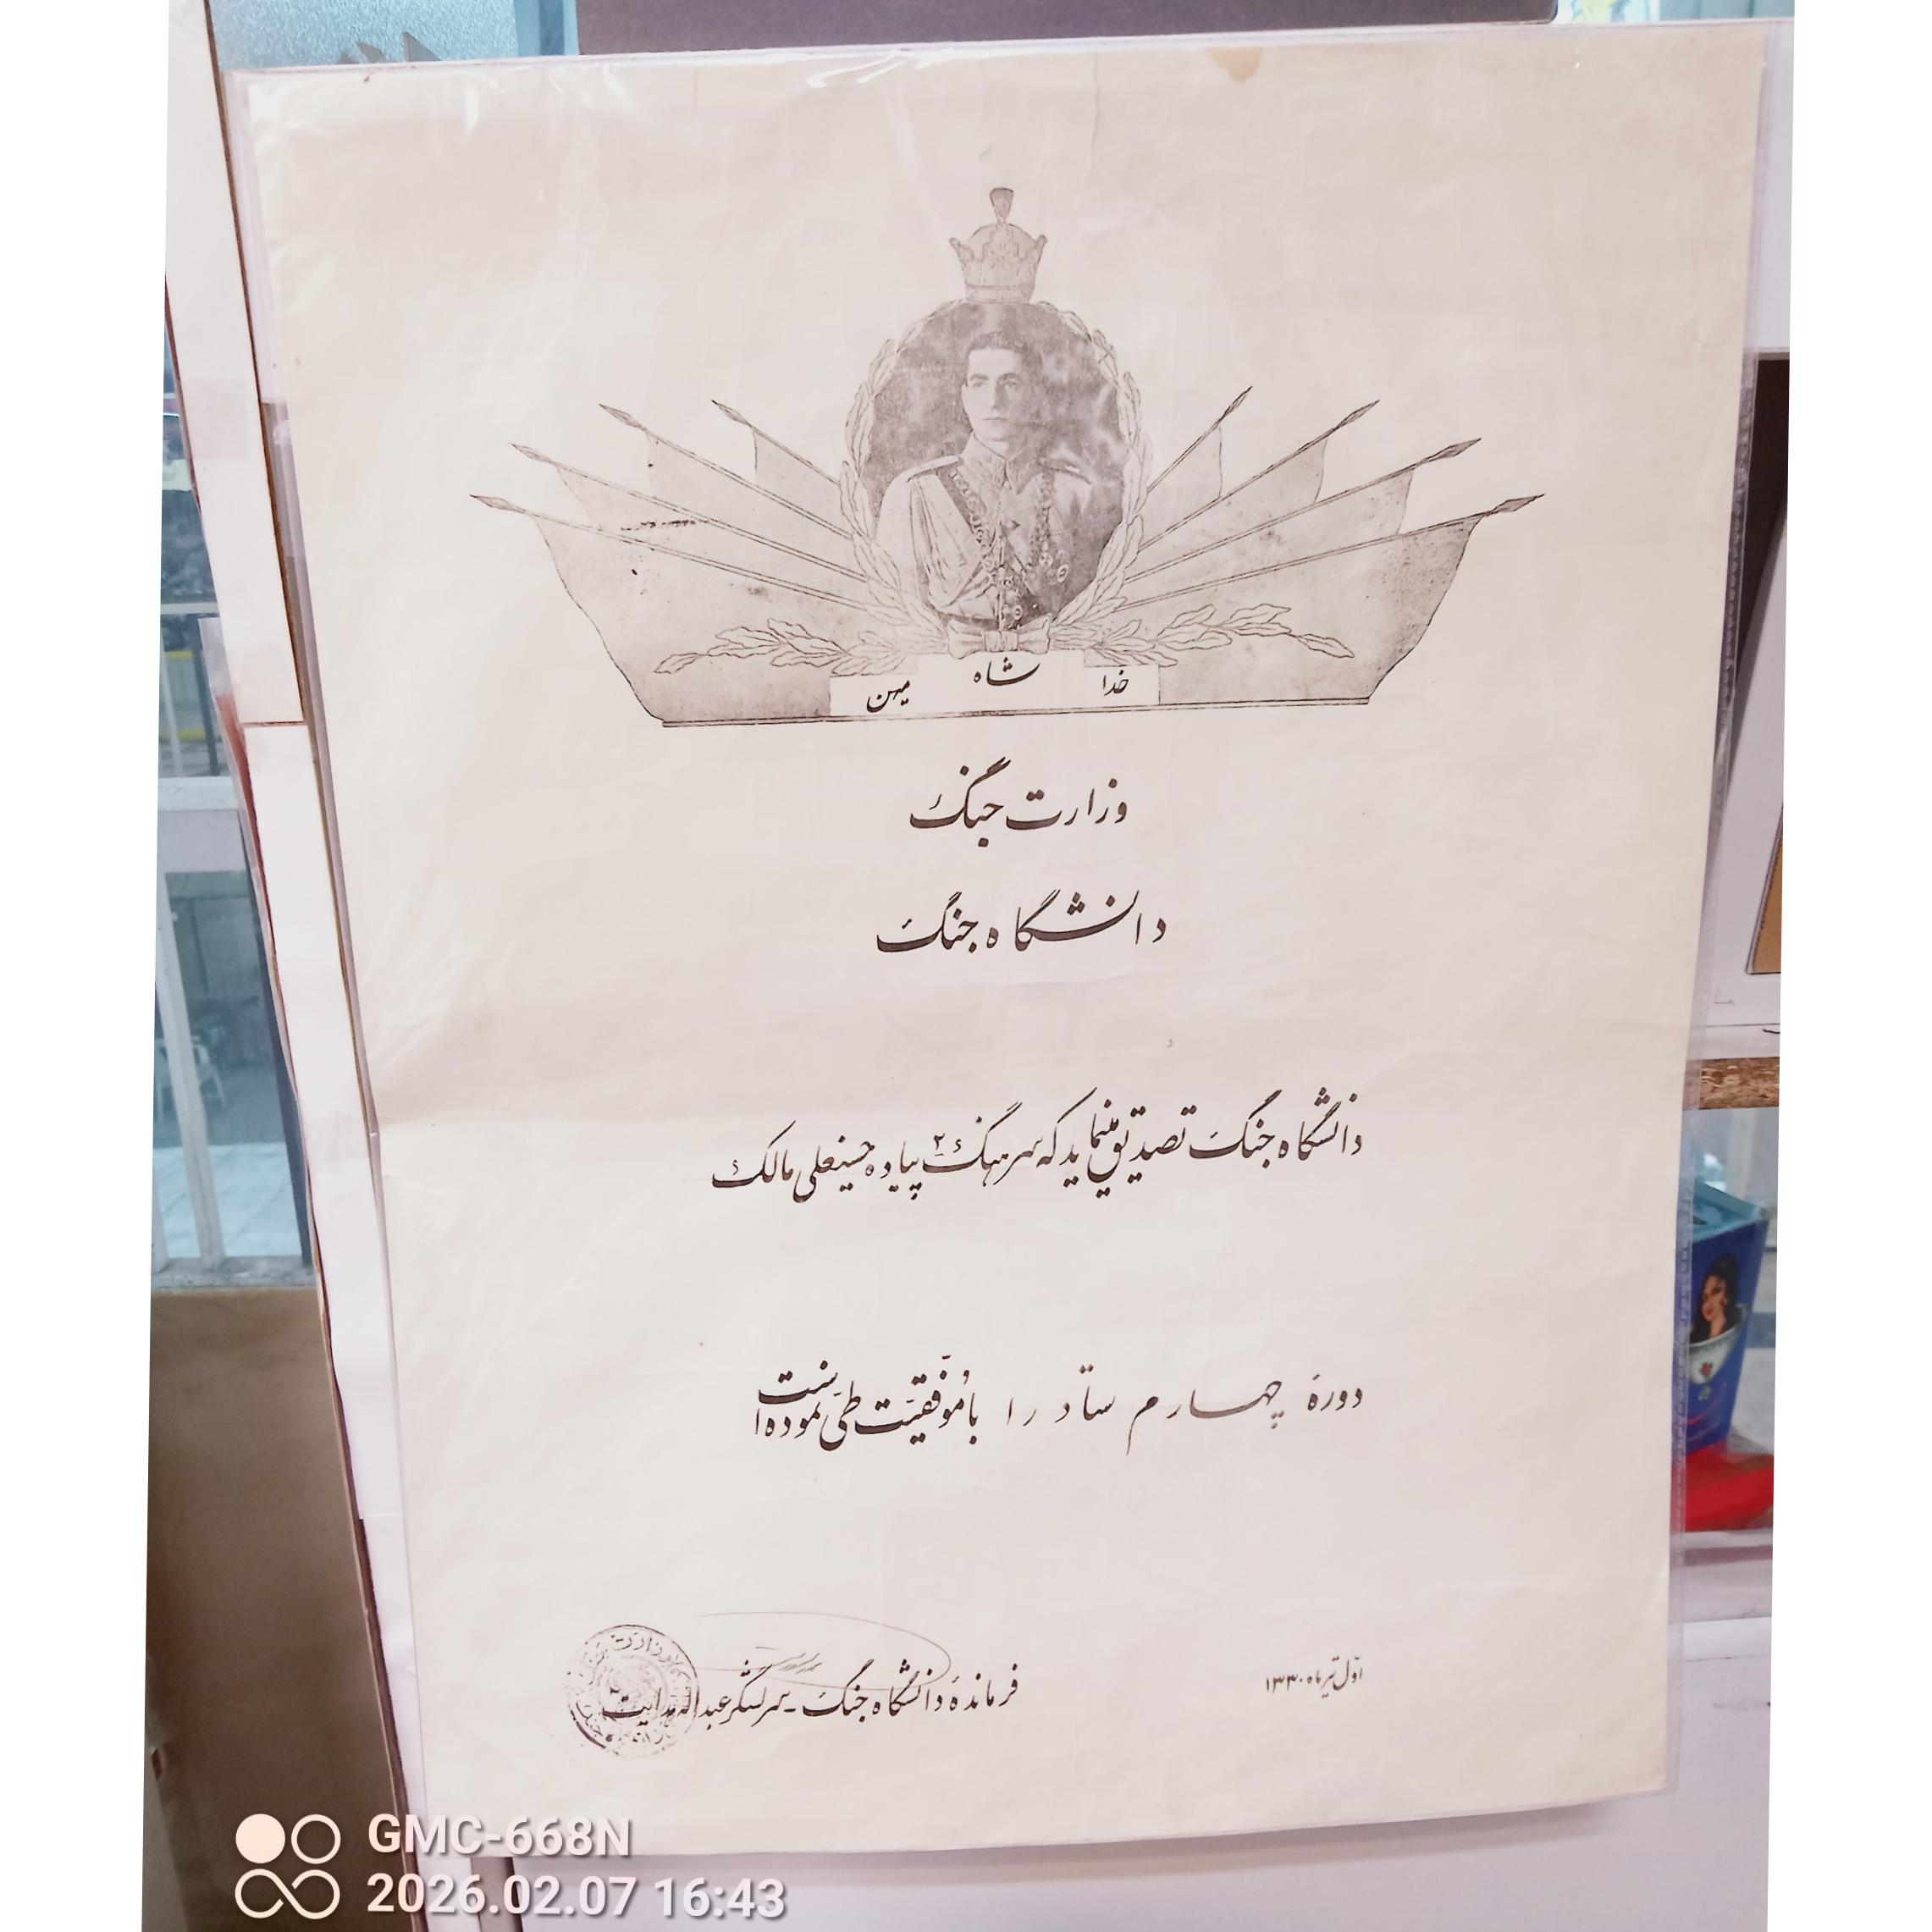 خدا شاه میهن
وزارت جنگ
دانشگاه جنگ
دانشگاه جنگ تصدیق مینماید که سرهنگ ۲ پیاده حسینعلی مالک
دورهٔ چهارم ستاد را با موفقیت طی نموده است
اول تیر ماه ۱۳۳۰
فرماندهٔ دانشگاه جنگ - سرلشگر عبدالله هدایت
وزارت
GMC-668N
2026.02.07 16:43